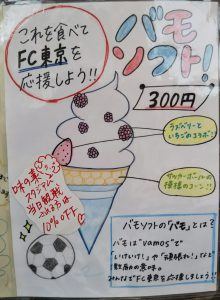 これを食べて
FC東京を
応援しよう!!
バモ
ソフト!
300円
ラズベリーと
いちごのコラボ!
サッカーボールの
模様のコーン!!
味の素
スタジアムで
当日観戦
される方は
10%OFF
バモソフトの「バモ」とは?
バモは"vamos"で
いけいけ!」や「頑張れ!」などの
鼓舞の意味。
みんなでFC東京を応援しましょう!!